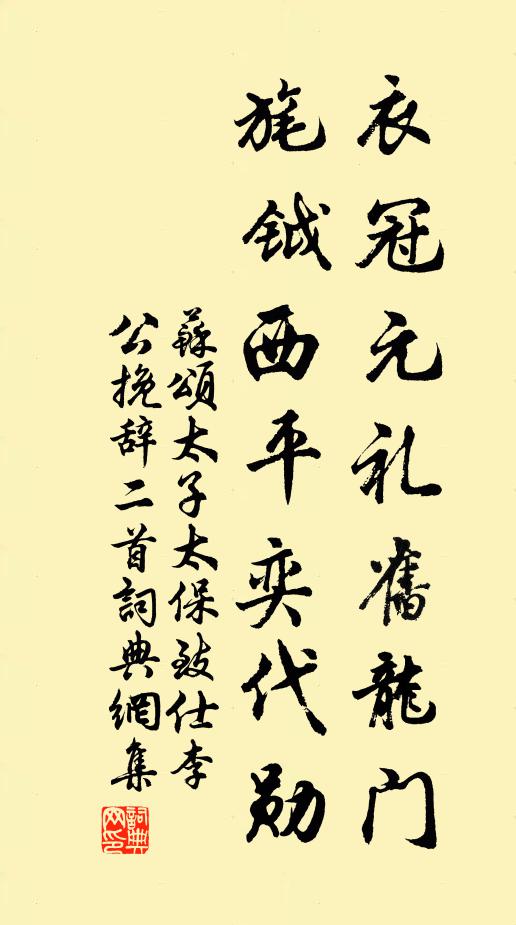 衣冠元礼舊龍门
旄钺西平奕代勋
蘇頌太子太保致仕李
公挽辞二首詞典網集
詞典网印